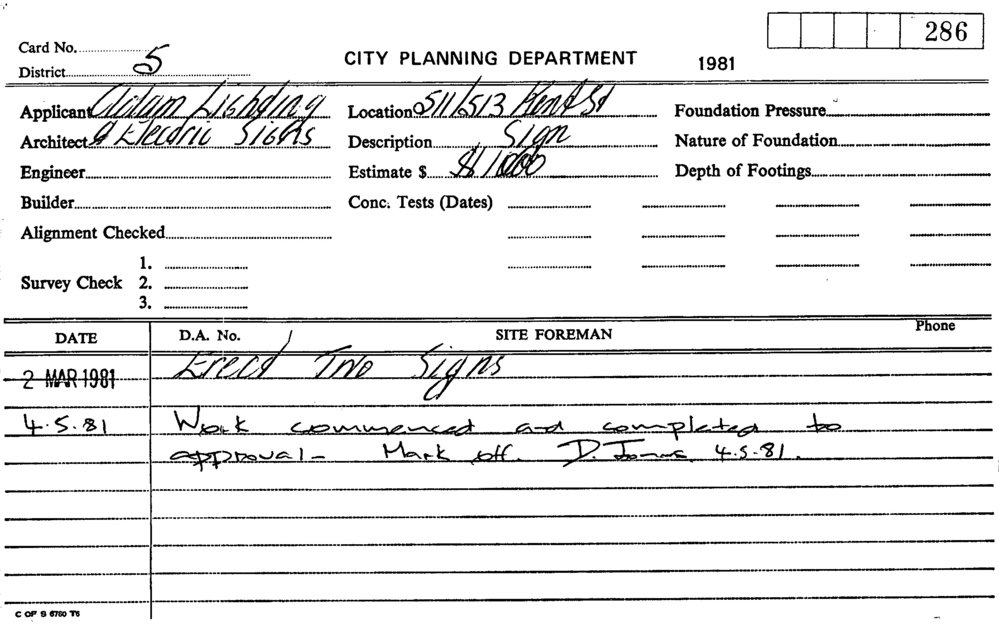 286
Card No.
District 5
CITY PLANNING DEPARTMENT
1981
Applicant Adam Lighting
Location 511/513 Kent St
Foundation Pressure
Architect & Electric Signs
Description Sign
Nature of Foundation
Engineer
Estimate $ $1000
Depth of Footings
Builder
Conc. Tests (Dates)
Alignment Checked
Survey Check 1.
2.
3.
DATE
D.A. No.
SITE FOREMAN
Phone
2 MAR 1981
Erect Two Signs
4.5.81
Work commenced and completed to
approval - Mark off. D. 4.5.81.
C OF S 6760 T6